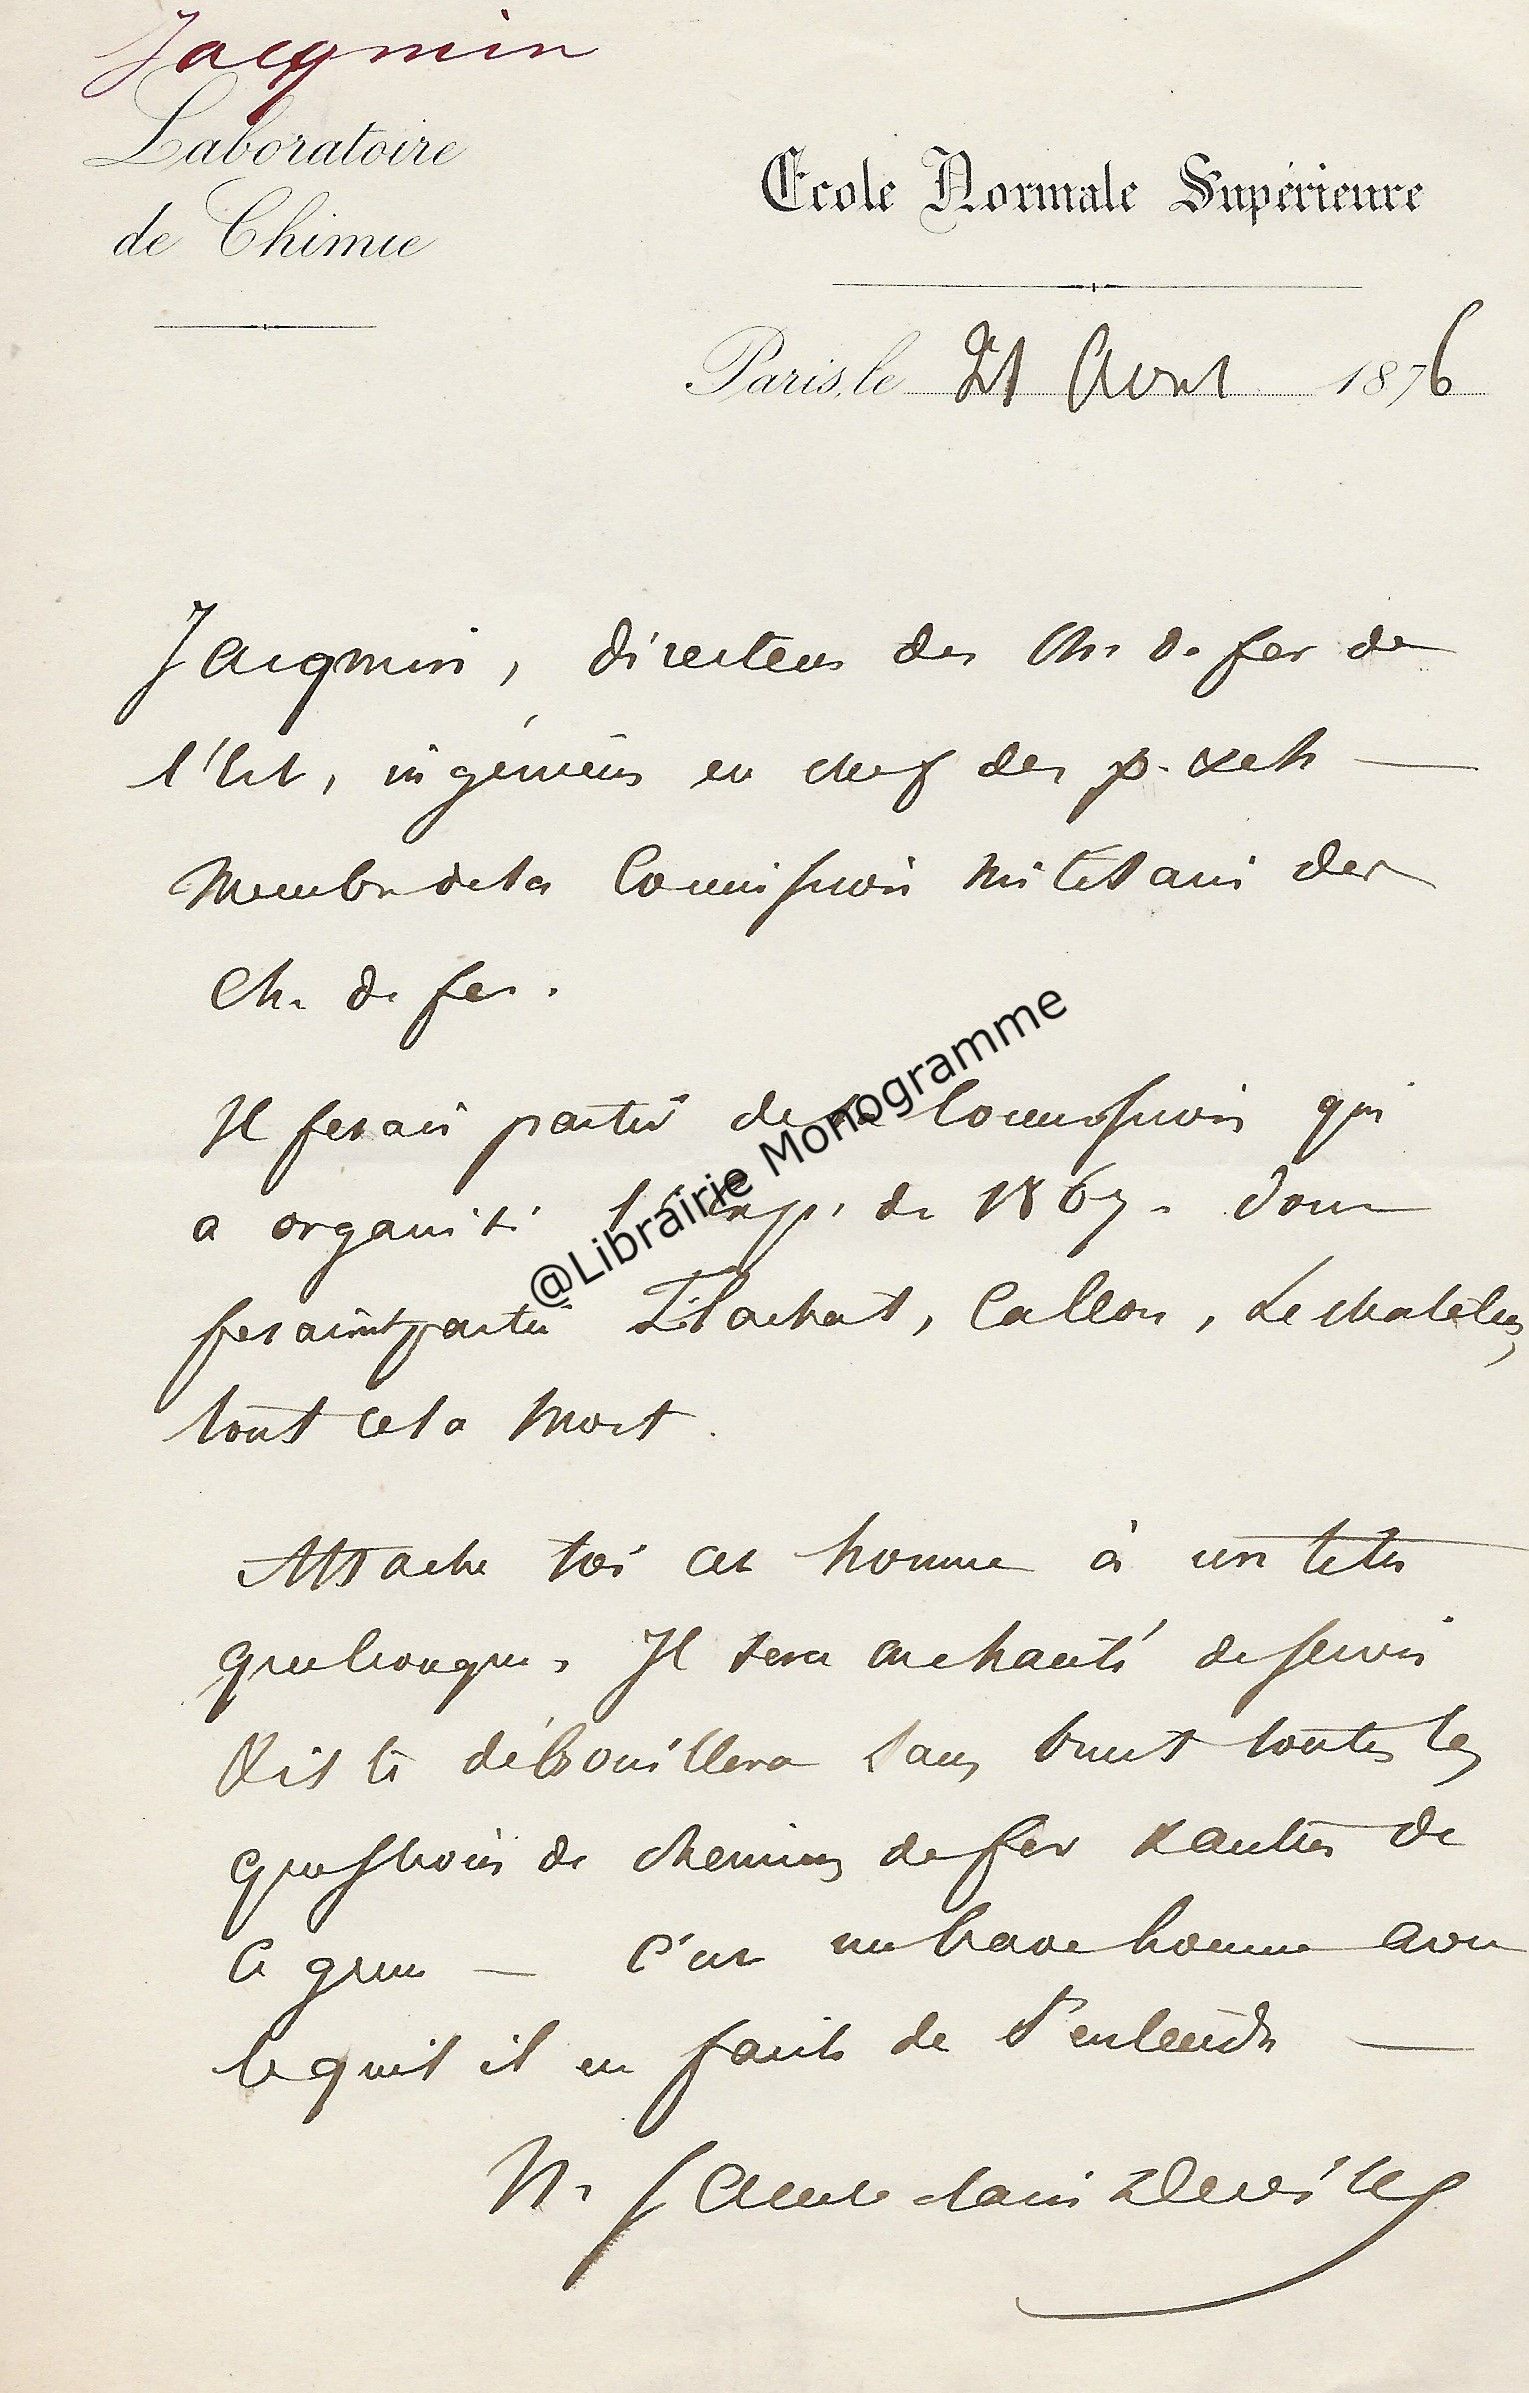 Jacqmin
Laboratoire
de Chimie
Ecole Normale Supérieure
Paris, le 21 Avril 1876
Jacqmin, directeur des Ch. de fer de
l'Est, ingénieur en chef des p. & ch —
Membre de la Commission militaire des
Ch. de fer.
Il faisait partie de la Commission qui
a organisé l'Exp. de 1867. dont
faisaient partie Flachat, Callon, Lechatelier,
tout cela mort.
Attache toi cet homme à un titre
quelconque. Il sera enchanté de servir
& il te débrouillera sans bruit toutes les
questions de chemins de fer & autres de
ce genre — C'est un brave homme avec
lequel il est facile de s'entendre —
H. Sainte Claire Deville
@Librairie Monogramme